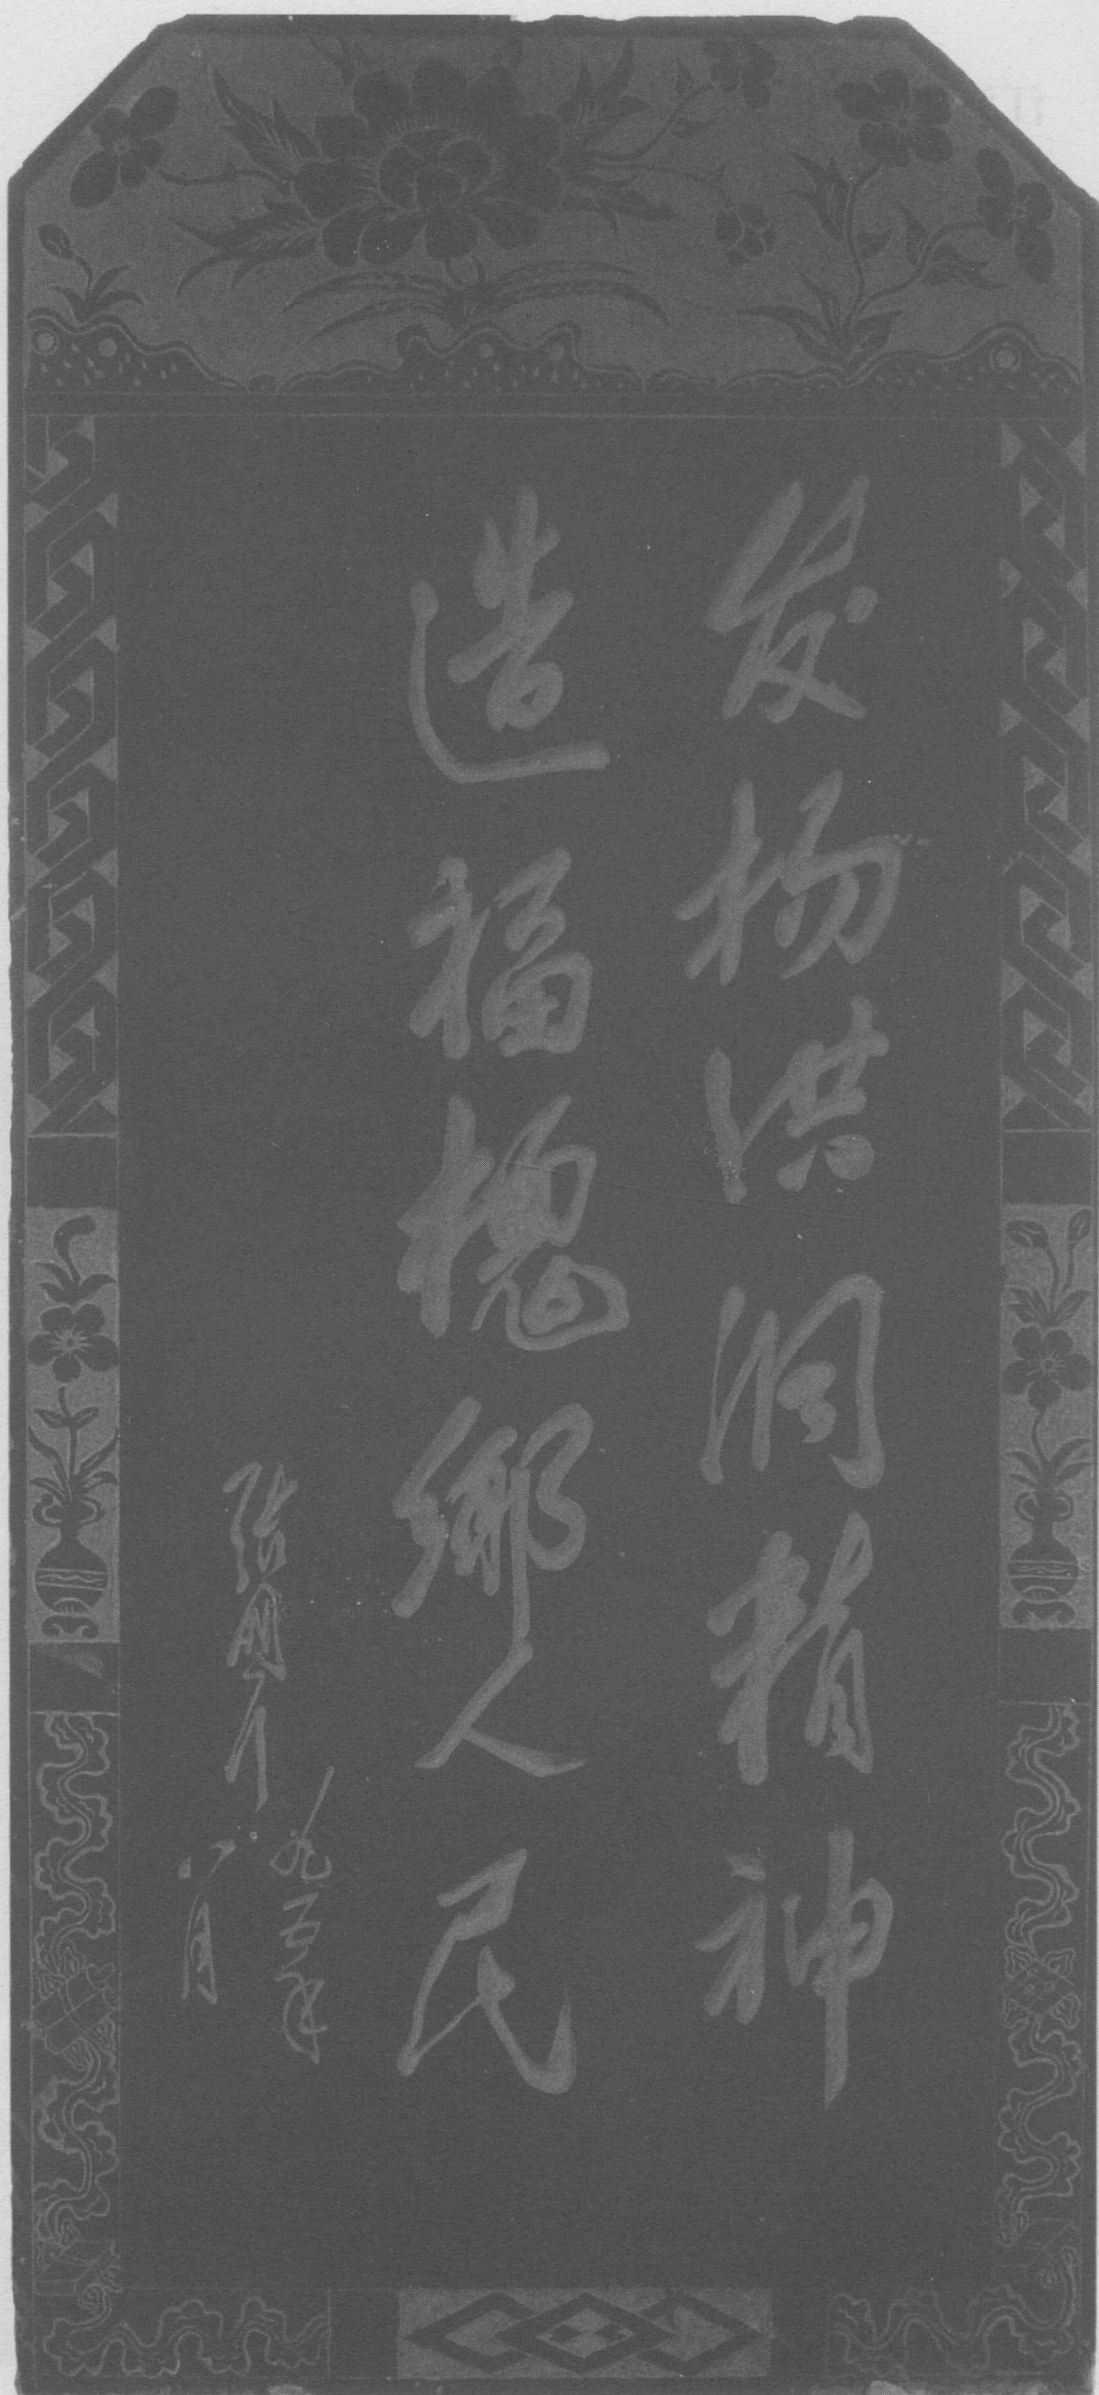 发扬洪洞精神
造福槐鄉人民
九五年
八月